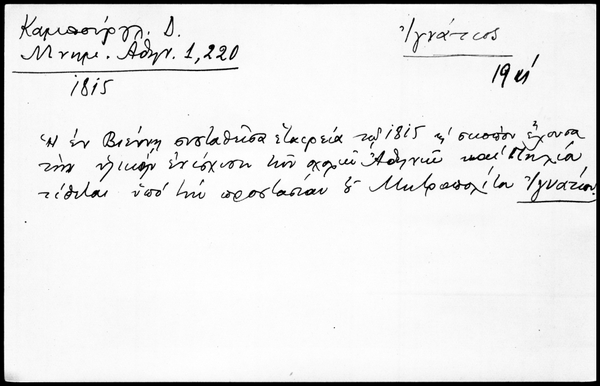 Καμπούρογλ. Δ.
Μνημ. Αθην. 1, 220
1815
Ἰγνάτιος
19
Ἡ ἐν Βιέννῃ συσταθεῖσα ἑταιρεία τῷ 1815 σκοπὸν ἔχουσα
τὴν ὑλικὴν ἐνίσχυσιν τῶν σχολῶν Ἀθηνῶν καὶ Πηλίου
τίθεται ὑπὸ τὴν προστασίαν τοῦ Μητροπολίτου Ἰγνατίου.